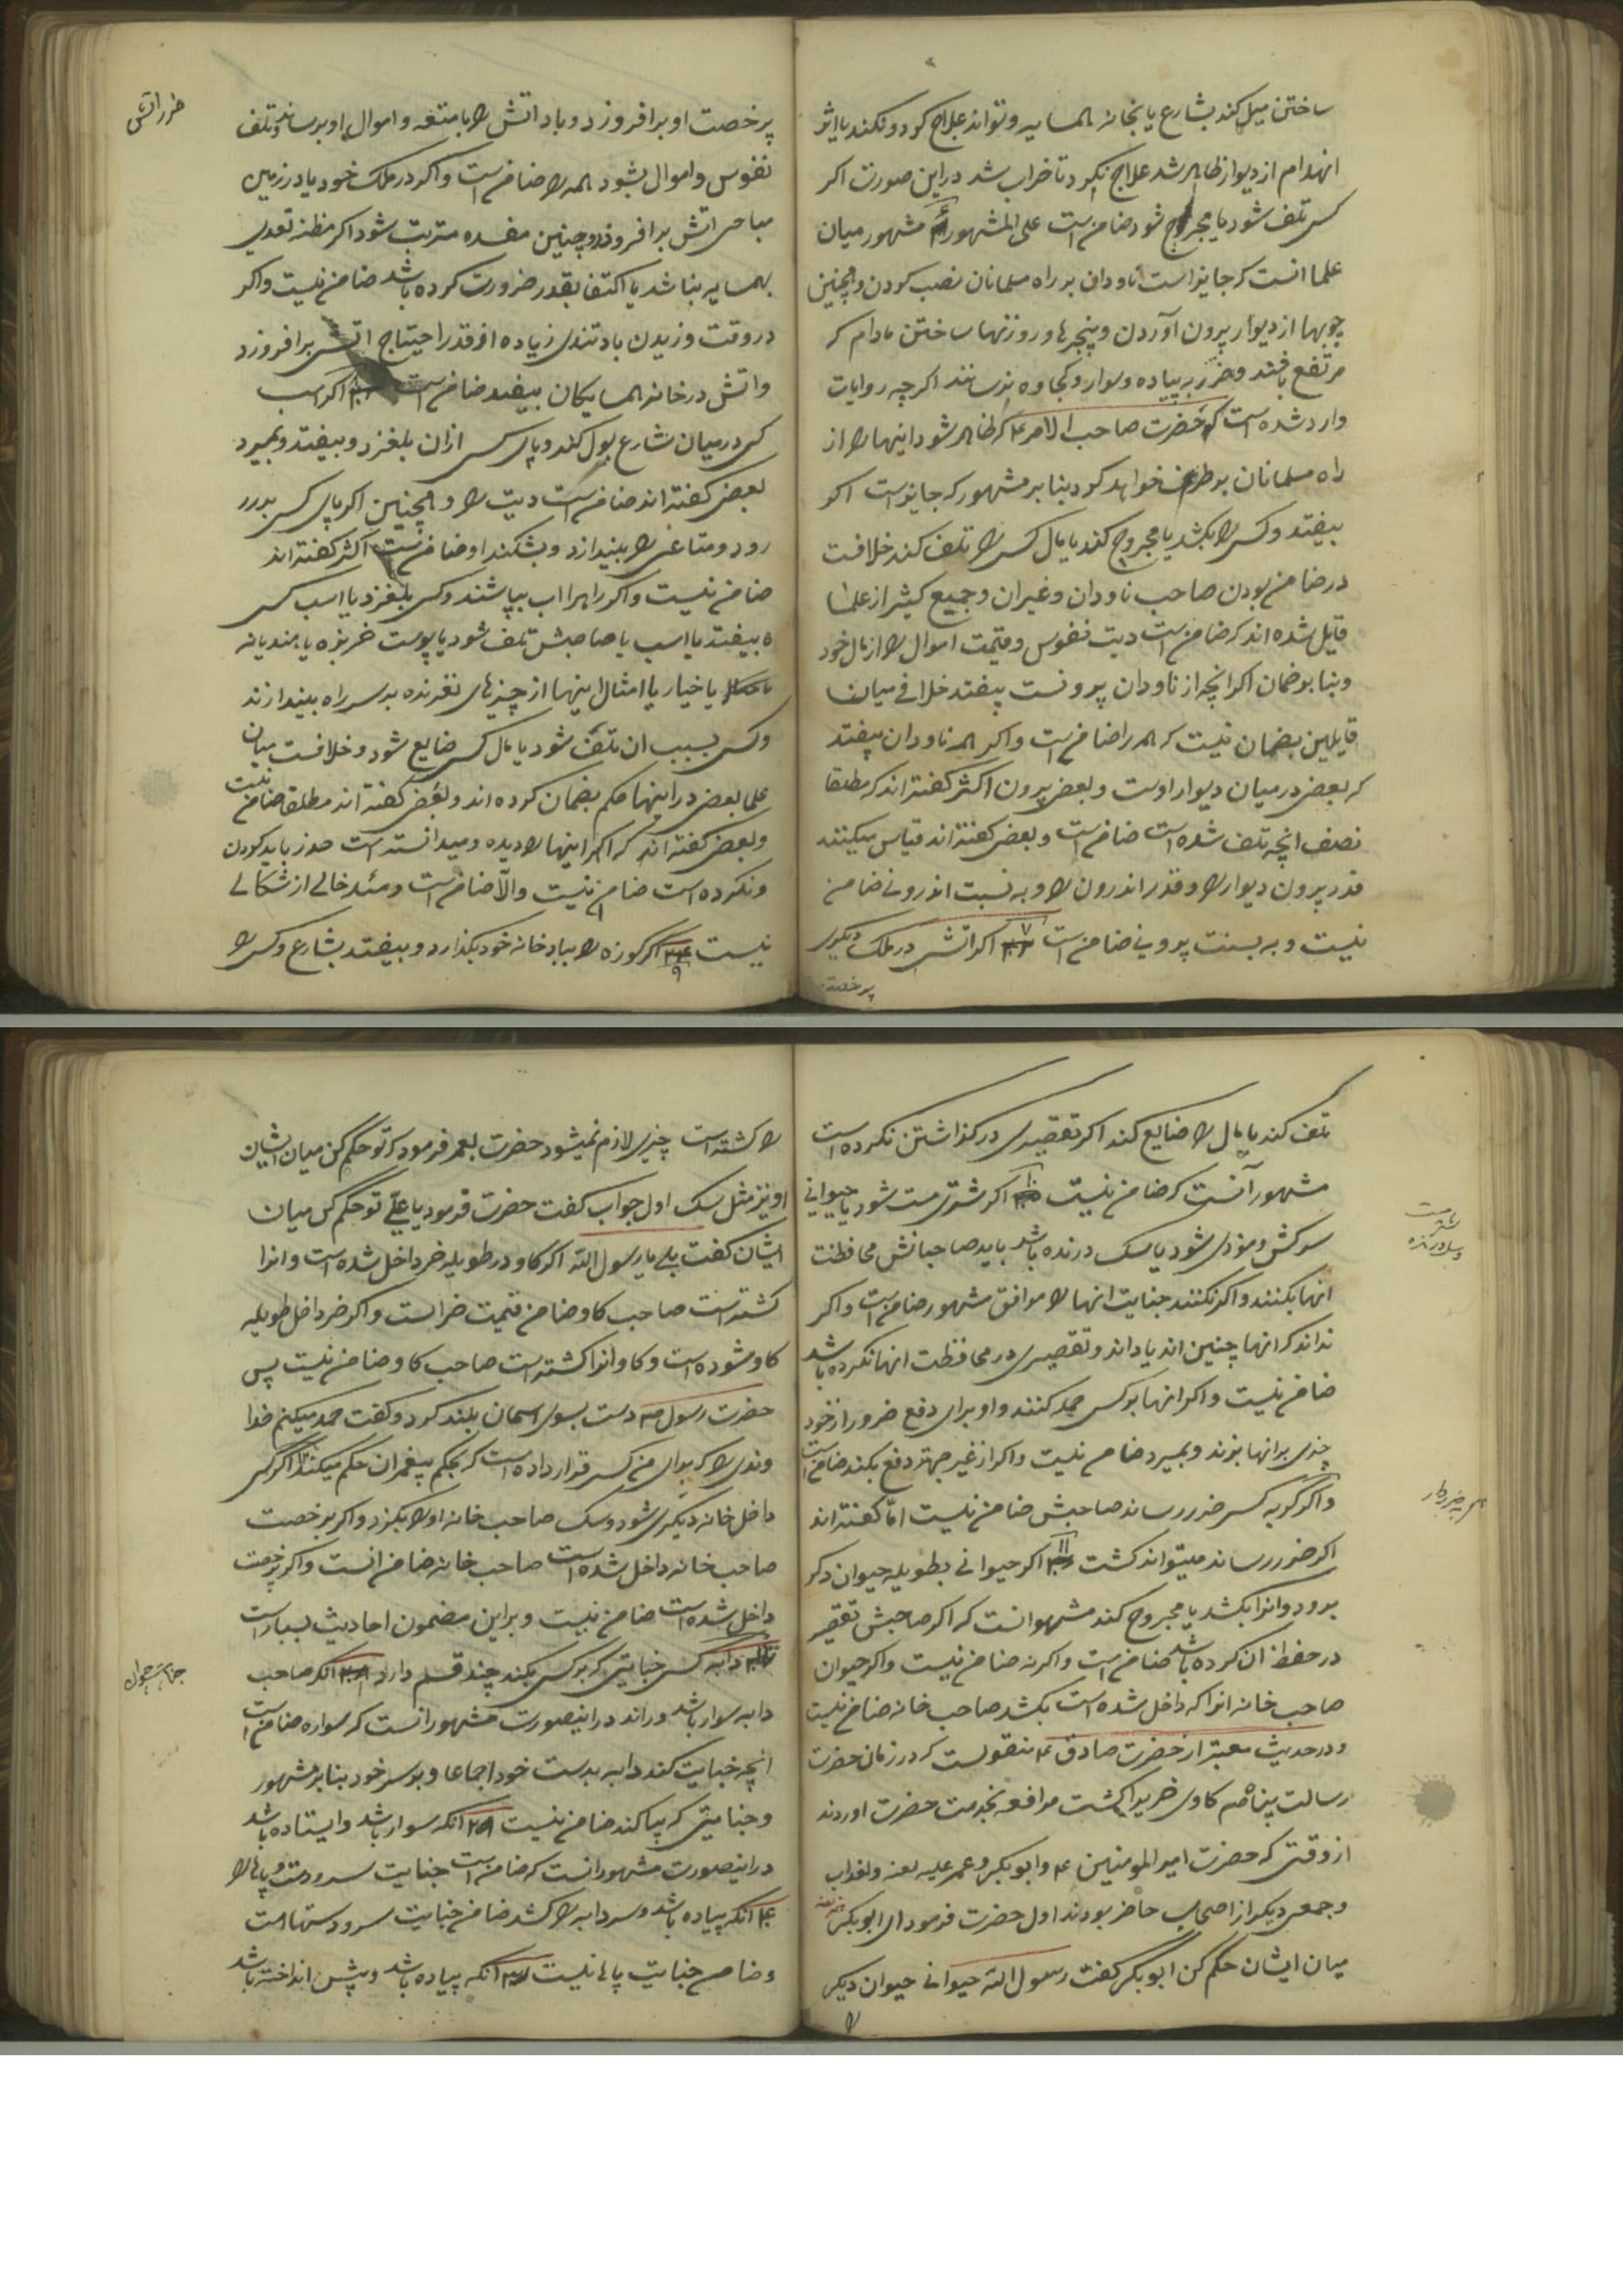 ساختن میل کند بشارع یا بخانه همسایه و تواند علاج کرد و نکند یا اثر
انهدام از دیوار ظاهر شد علاج نکرد تا خراب شد در این صورت اکر
کسی تلف شود یا مجروح شود ضامن است علی المشهور مشهور میان
علما انست که جایز است ناودان بر راه مسلمانان نصب کردن و همچنین
چوبها از دیوار بیرون آوردن و پنجرها و روزنها ساختن مادام که
مرتفع باشند و ضرر به پیاده و سوار و کجاوه نرسانند اکرچه روایات
وارد شده است که حضرت صاحب الامر ع که ظاهر شود اینها را از
راه مسلمانان بر طرف خواهد کرد بنا بر مشهور که جایز است اکر
بیفتد و کسی را بکشد یا مجروح کند یا مال کسی را تلف کند خلافست
در ضامن بودن صاحب ناودان و غیران و جمیع کثیر از علما
قایل شده اند که ضامن است دیت نفوس و قیمت اموال را از مال خود
و بنا بر ضمان اکر انچه از ناودان بیرونست بیفتد خلافی میان
قایلین بضمان نیست که همه را ضامن است و اکر همه ناودان بیفتد
که بعضی در میان دیوار اوست و بعضی بیرون اکثر کفته اند که مطلقا
نصف انچه تلف شده است ضامن است و بعضی کفته اند قیاس میکنند
قدر بیرون دیوار را و قدر اندرون را و به نسبت اندرونی ضامن
نیست و به نسبت بیرونی ضامن است اکر اتش در ملک دیکری
بی رخصت
ضرر اتش
بی رخصت او برافروزد و باد اتش را بامتعه و اموال او برساند و تلف
نفوس و اموال بشود همه را ضامن است و اکر در ملک خود یا در زمین
مباحی اتش برافروزد و چنین مفسده مترتب شود اکر مظنه تعدی
بهمسایه نباشد یا اکتفا بقدر ضرورت کرده باشد ضامن نیست و اکر
در وقت وزیدن باد تندی زیاده از قدر احتیاج اتش برافروزد
و اتش در خانه همسایکان بیفتد ضامن است اکر اسب
کسی در میان شارع بول کند و پای کسی از ان بلغزد و بیفتد و بمیرد
بعضی کفته اند ضامن است دیت را و همچنین اکر پای کسی بدرد
رود و متاعی را بیندازد و بشکند او ضامن است اکثر کفته اند
ضامن نیست و اکر راهرا اب بپاشند و کسی بلغزد یا اسب کسی
بیفتد یا اسب یا صاحبش تلف شود یا پوست خربزه یا هندیانه
یا خیار یا امثال اینها از چیزهای لغزنده بر سر راه بیندازند
و کسی بسبب ان تلف شود یا مال کسی ضایع شود و خلافست میان
علما بعضی در اینها حکم بضمان کرده اند و بعضی کفته اند مطلقا ضامن نیست
و بعضی کفته اند که اکر اینها را دیده و میدانسته است حذر باید کردن
و نکرده است ضامن نیست والا ضامن است و مسئله خالی از شکالی
نیست اکر کوزه را بر بام خانه خود بکذارد و بیفتد بشارع و کسی را
تلف کند یا مال را ضایع کند اکر تقصیری در کذاشتن نکرده است
مشهور آنست که ضامن نیست اکر شتری مست شود یا حیوانی
سرکش و موذی شود یا سک درنده باشد باید صاحبانش محافظت
انها بکنند و اکر نکنند جنایت انها را موافق مشهور ضامن است و اکر
نداند که انها چنین اند یا داند و تقصیری در محافظت انها نکرده باشد
ضامن نیست و اکر انها بر کسی حمله کنند و او برای دفع ضرور از خود
چیزی بر انها بزند و بمیرد ضامن نیست و اکر از غیر جهة دفع بکند ضامن است
و اکر کربه کسی ضرر رساند صاحبش ضامن نیست اما کفته اند
اکر ضرر رساند میتواند کشت اکر حیوانی بطویله حیوان دکر
برود و انرا بکشد یا مجروح کند مشهور انست که اکر صاحبش تقصیر
در حفظ ان کرده باشد ضامن است و اکر نه ضامن نیست و اکر حیوان
صاحب خانه انرا که داخل شده است بکشد صاحب خانه ضامن نیست
و در حدیث معتبر از حضرت صادق ع منقولست که در زمان حضرت
رسالت پناه ص کاوی خریرا کشت مرافعه بخدمت حضرت اوردند
از وقتی که حضرت امیر المومنین ع و ابوبکر و عمر علیه لعنه والعذاب
و جمعی دیکر از اصحاب حاضر بودند اول حضرت فرمود ای ابوبکر
میان ایشان حکم کن ابوبکر کفت رسول الله حیوانی حیوان دیکر
را
را کشته است چیزی لازم نمیشود حضرت بعمر فرمود که تو حکم کن میان ایشان
او نیز مثل سک اول جواب کفت حضرت فرمود یا علی تو حکم کن میان
ایشان کفت بلی یا رسول الله اکر کاو در طویله خر داخل شده است و انرا
کشته است صاحب کاو ضامن قیمت خر است و اکر خر داخل طویله
کاو شده است و کاو انرا کشته است صاحب کاو ضامن نیست پس
حضرت رسول ص دست بسوی اسمان بلند کرد و کفت حمد میکنم خدا
وندی را که برای من کسی قرار داده است که بحکم پیغمبران حکم میکند اکر کسی
داخل خانه دیکری شود و سک صاحب خانه او را بکزد و اکر برخصت
صاحب خانه داخل شده است صاحب خانه ضامن انست و اکر بی رخصت
داخل شده است ضامن نیست و بر این مضمون احادیث بسیار است
دابه کسی جنایتی که بر کسی بکند چند قسم دارد انکه صاحب
جنایت حیوان
دابه سوار باشد و راند در اینصورت مشهور انست که سواره ضامن است
انچه جنایت کند دابه بدست خود اجماعا و بسر خود بنا بر مشهور
و جنایتی که بپا کند ضامن نیست انکه سوار باشد و ایستاده باشد
در اینصورت مشهور انست که ضامن است جنایت سر و دست و پاها را
انکه پیاده باشد و سر دابه را کشد ضامن جنایت سر و دستهاست
و ضامن جنایت پاها نیست انکه پیاده باشد و پیش انداخته باشد